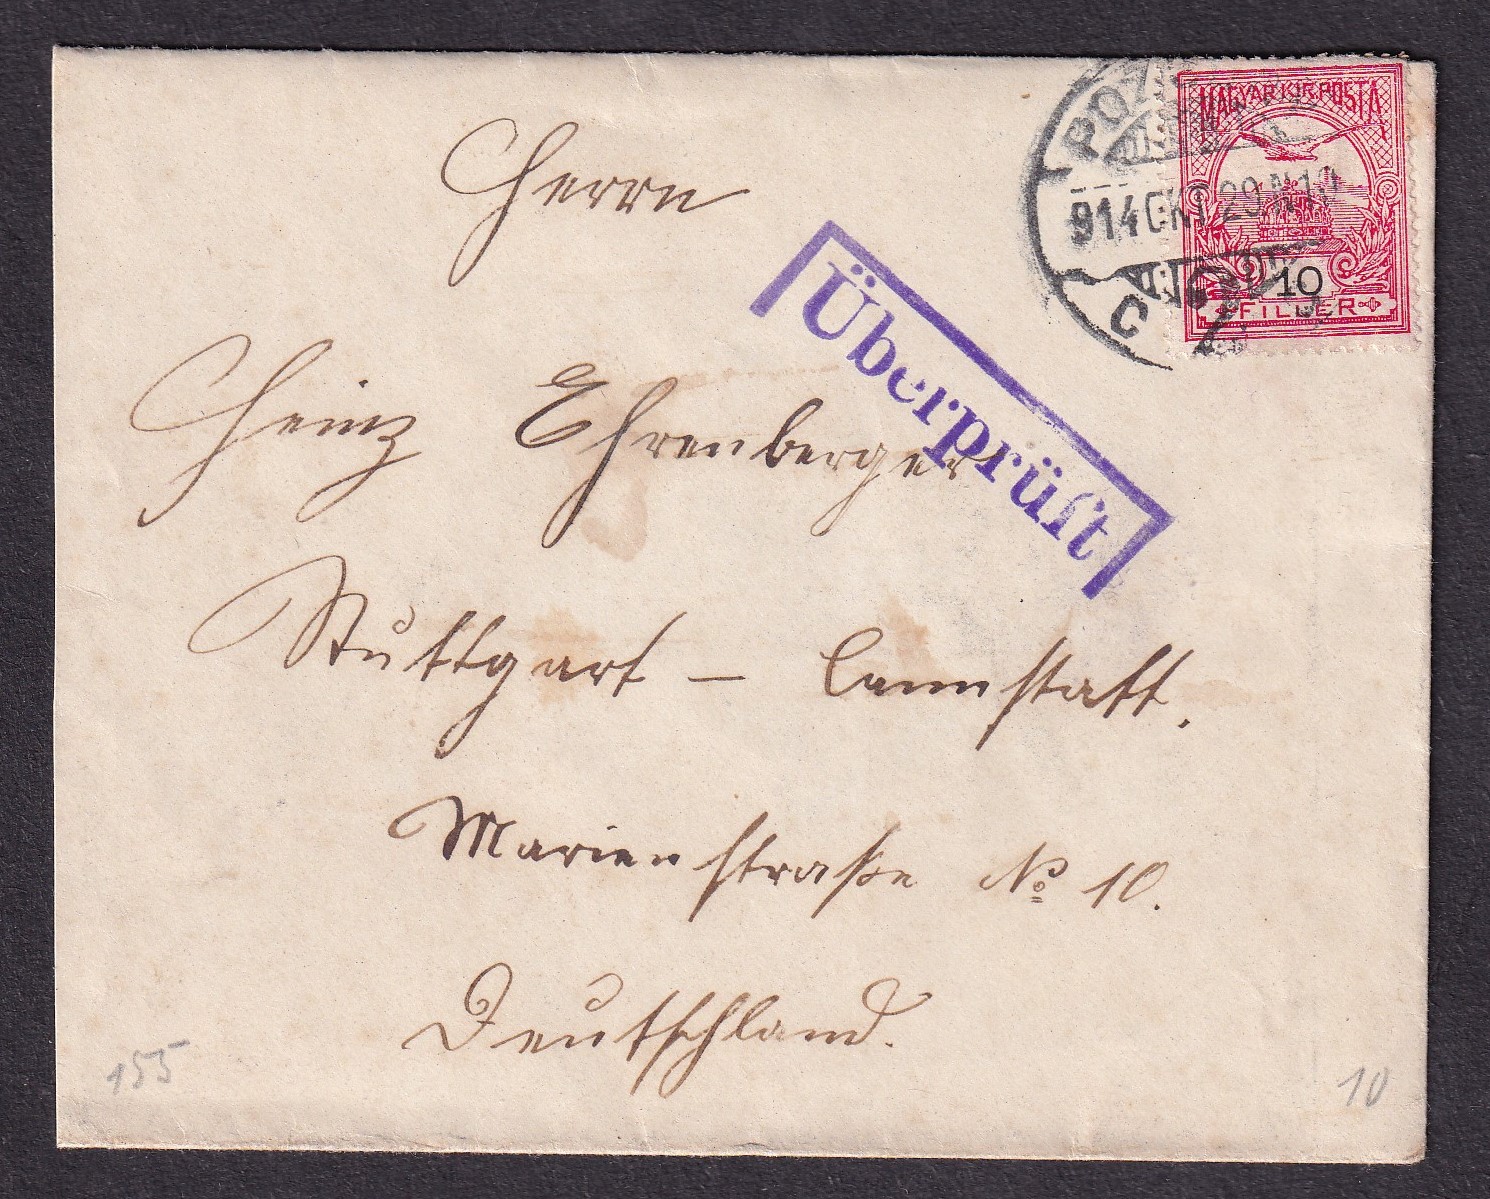 MAGYAR KIR. POSTA
10
FILLER
POZ
914 OKT 29. N 10
C
Überprüft
Herrn
Heinz Ehrenberger
Stuttgart – Cannstatt.
Marienstraße No 10.
Deutschland.
155
10